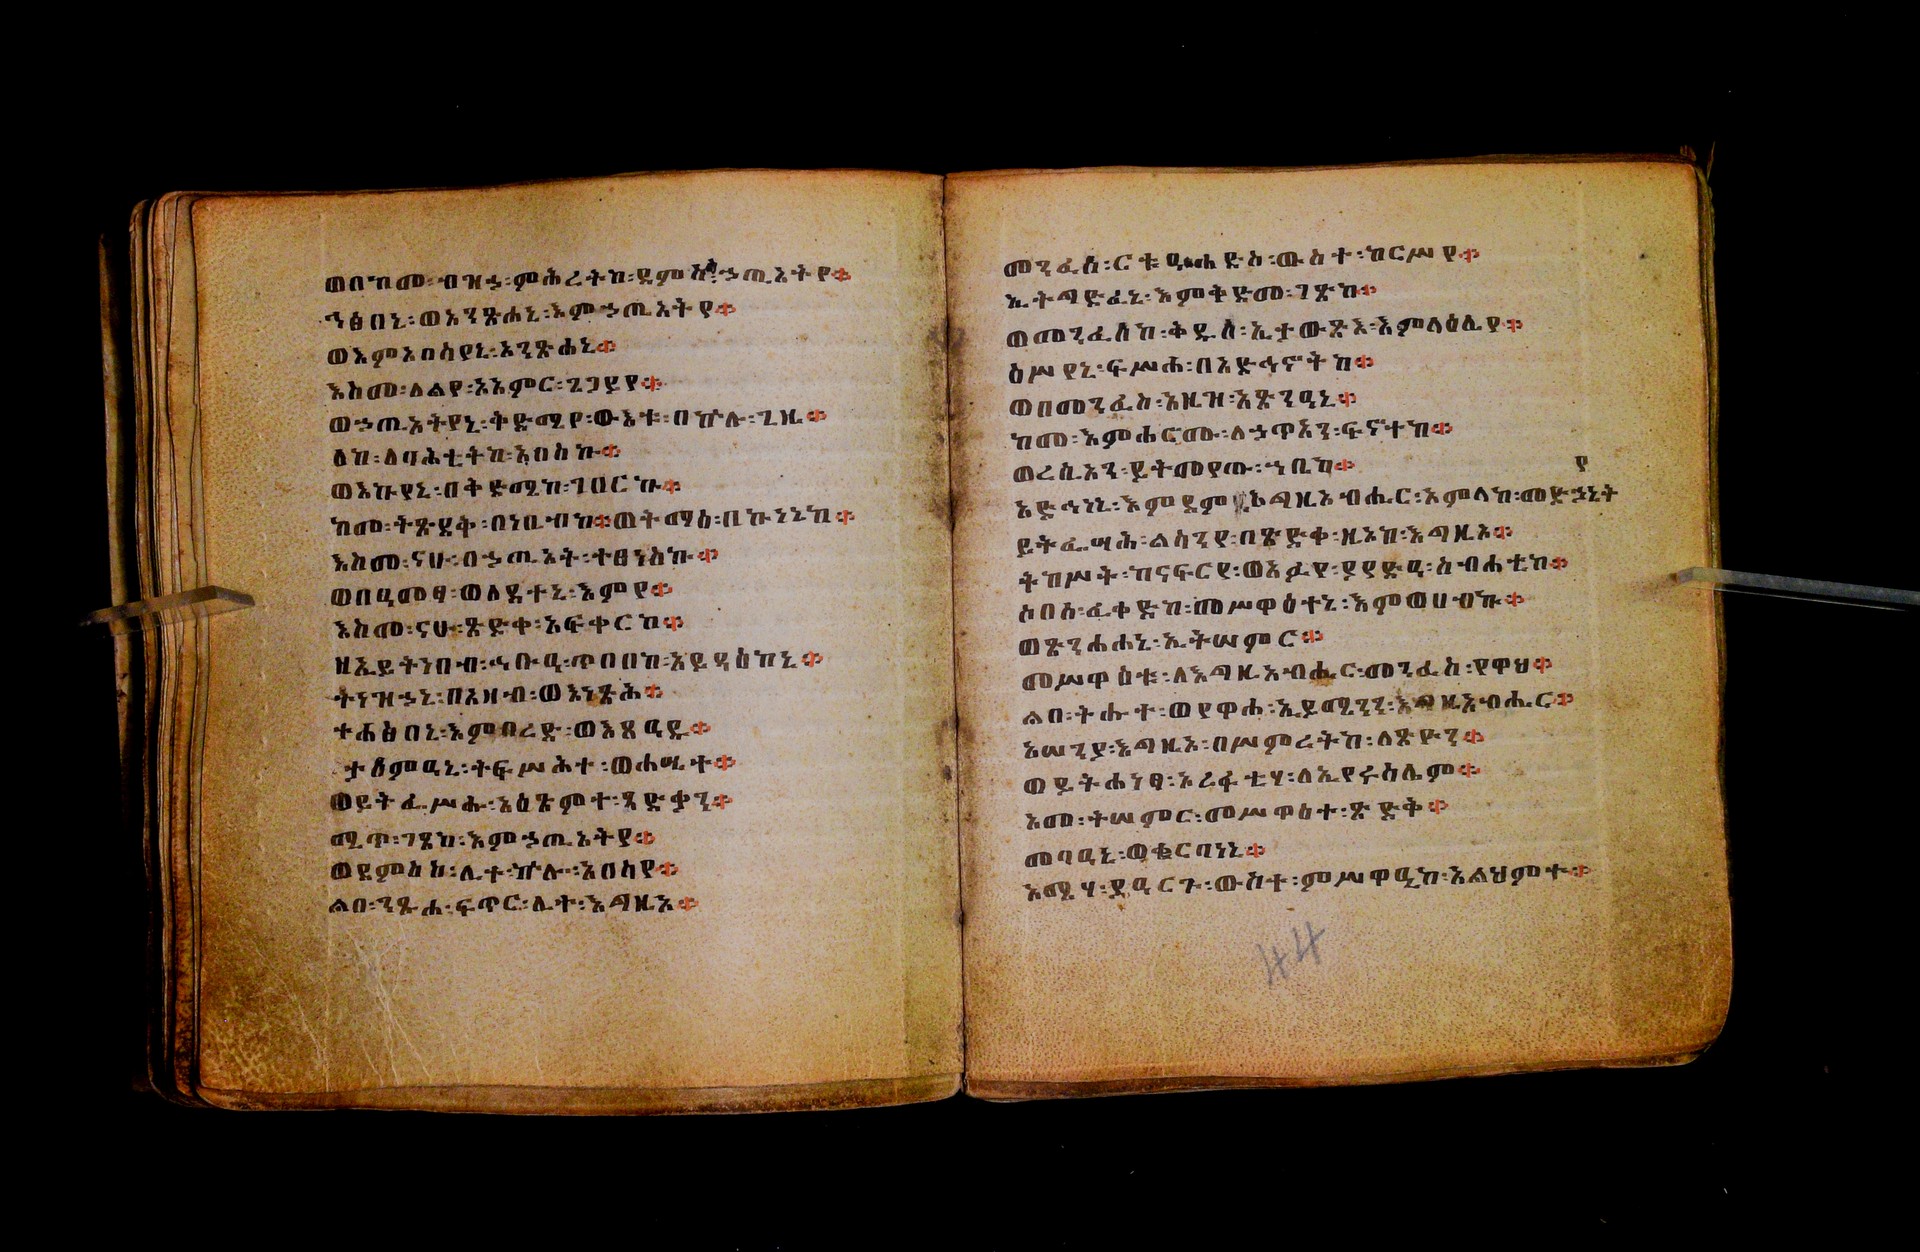 ወበከመ፡ብዝኃ፡ምሕረትከ፡ደምስስ፡ኃጢአትየ፨
ኅፅበኒ፡ወአንጽሐኒ፡እምኃጢአትየ፨
ወእምአበሳየኒ፡አንጽሐኒ፨
እስመ፡ለልየ፡አአምር፡ጌጋይየ፨
ወኃጢአትየኒ፡ቅድሜየ፡ውእቱ፡በኵሉ፡ጊዜ፨
ለከ፡ለባሕቲትከ፡አበስኩ፨
ወእኩየኒ፡በቅድሜከ፡ገበርኩ፨
ከመ፡ትጽደቅ፡በነቢብከ፨ወትማዕ፡በኵነኔከ፨
እስመ፡ናሁ፡በኃጢአት፡ተፀነስኩ፨
ወበዓመፃ፡ወለደተኒ፡እምየ፨
እስመ፡ናሁ፡ጽድቀ፡አፍቀርከ፨
ዘኢይትነበብ፡ኅቡዓ፡ጥበበከ፡አይዳዕከኒ፨
ትነዝኃኒ፡በአዛብ፡ወእነጽሕ፨
ተሐፅበኒ፡እምበረድ፡ወእጸዓዱ፨
ታሰምዓኒ፡ትፍሥሕተ፡ወሐሤተ፨
ወይትፌሥሑ፡አዕጽምተ፡ጻድቃን፨
ሚጥ፡ገጸከ፡እምኃጢአትየ፨
ወደምስስ፡ሊተ፡ኵሉ፡አበሳየ፨
ልበ፡ንጹሐ፡ፍጥር፡ሊተ፡እግዚኦ፨
መንፈሰ፡ርቱዓ፡ሐድስ፡ውስተ፡ከርሥየ፨
ኢትግድፈኒ፡እምቅድመ፡ገጽከ፨
ወመንፈሰከ፡ቅዱሰ፡ኢታውጽእ፡እምላዕሌየ፨
ዕሥየኒ፡ፍሥሐ፡በአድኅኖትከ፨
ወበመንፈስ፡አዚዝ፡አጽንዓኒ፨
ከመ፡እምሐሮሙ፡ለኃጥአን፡ፍኖተከ፨
ወረሲአን፡ይትመየጡ፡ኀቤከ፨
የ
አድኅነኒ፡እምደም፡እግዚአብሔር፡አምላከ፡መድኃኒት
ይትፌሣሕ፡ልሳንየ፡በጽድቀ፡ዚአከ፡እግዚኦ፨
ትከሥት፡ከናፍርየ፡ወአፉየ፡ያየድዕ፡ስብሐቲከ፨
ሶበሰ፡ፈቀድከ፡መሥዋዕተኒ፡እምወሀብኩ፨
ወጽንሐሐኒ፡ኢትሠምር፨
መሥዋዕቱ፡ለእግዚአብሔር፡መንፈስ፡የዋህ፨
ልበ፡ትሑተ፡ወየዋሐ፡ኢይሜንን፡እግዚአብሔር፨
አሠንያ፡እግዚኦ፡በሥምረትከ፡ለጽዮን፨
ወይትሐነፃ፡አረፋቲሃ፡ለኢየሩሳሌም፨
አመ፡ትሠምር፡መሥዋዕተ፡ጽድቅ፨
መባዓኒ፡ወቍርባነኒ፨
አሜሃ፡ያዓርጉ፡ውስተ፡ምሥዋዒከ፡አልህምተ፨
44